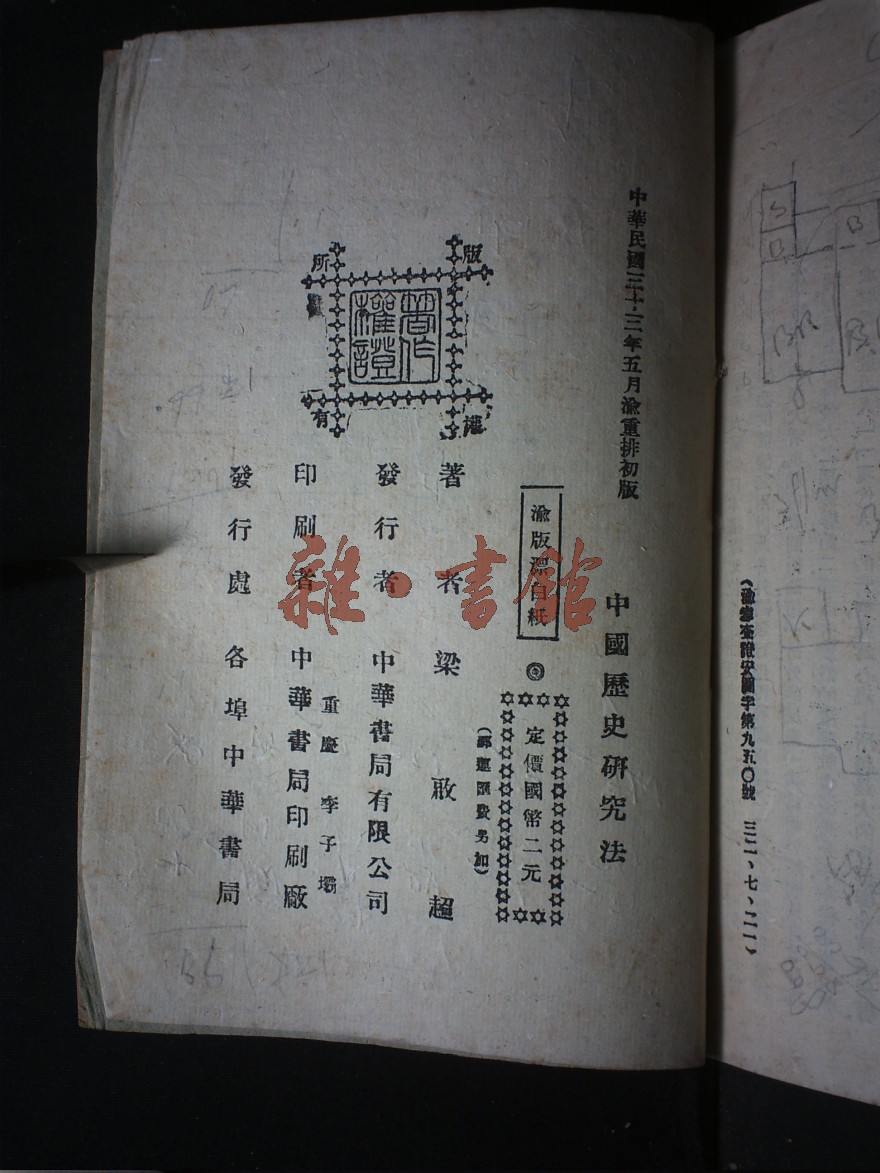 中華民國三十二年五月渝重排初版
中國歷史研究法
渝版漂白紙
定價國幣二元
(郵運匯費另加)
著者 梁啟超
發行者 中華書局有限公司
重慶李子壩
印刷者 中華書局印刷廠
發行處 各埠中華書局
版權所有
著作權證
雜·書館